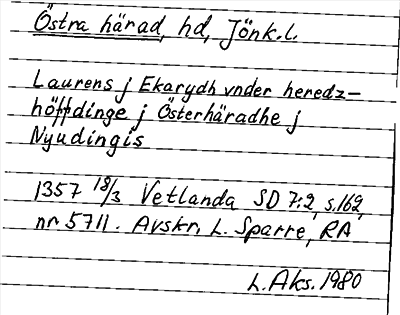 Östra härad, hd, Jönk.l.
Laurens j Ekarydh vnder heredz-
höffdinge j Österhäradhe j
Nyudingis
1357 18/3 Vetlanda SD 7:2, s.162,
nr 5711. Avskr. L. Sparre, RA
L.Aks. 1980